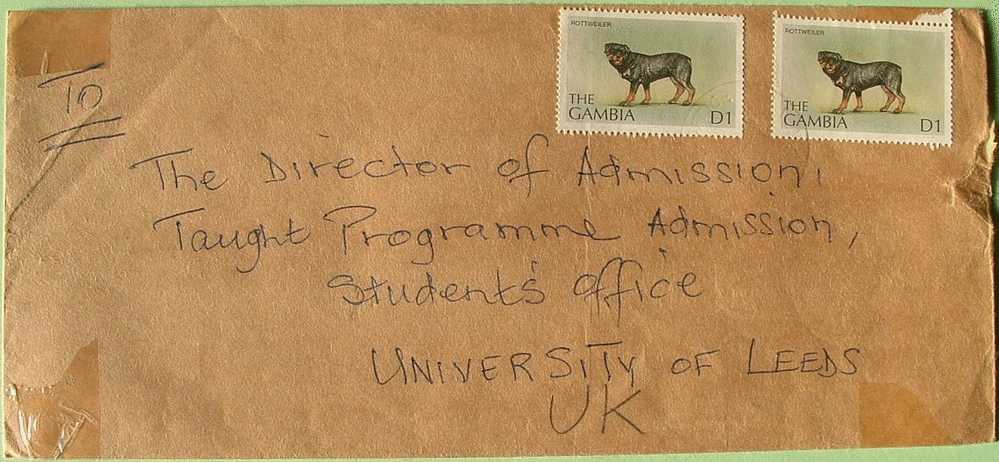 ROTTWEILER
THE
GAMBIA D1
ROTTWEILER
THE
GAMBIA D1
TO
The Director of Admission,
Taught Programme Admission,
Student's office
UNIVERSITY OF LEEDS
UK